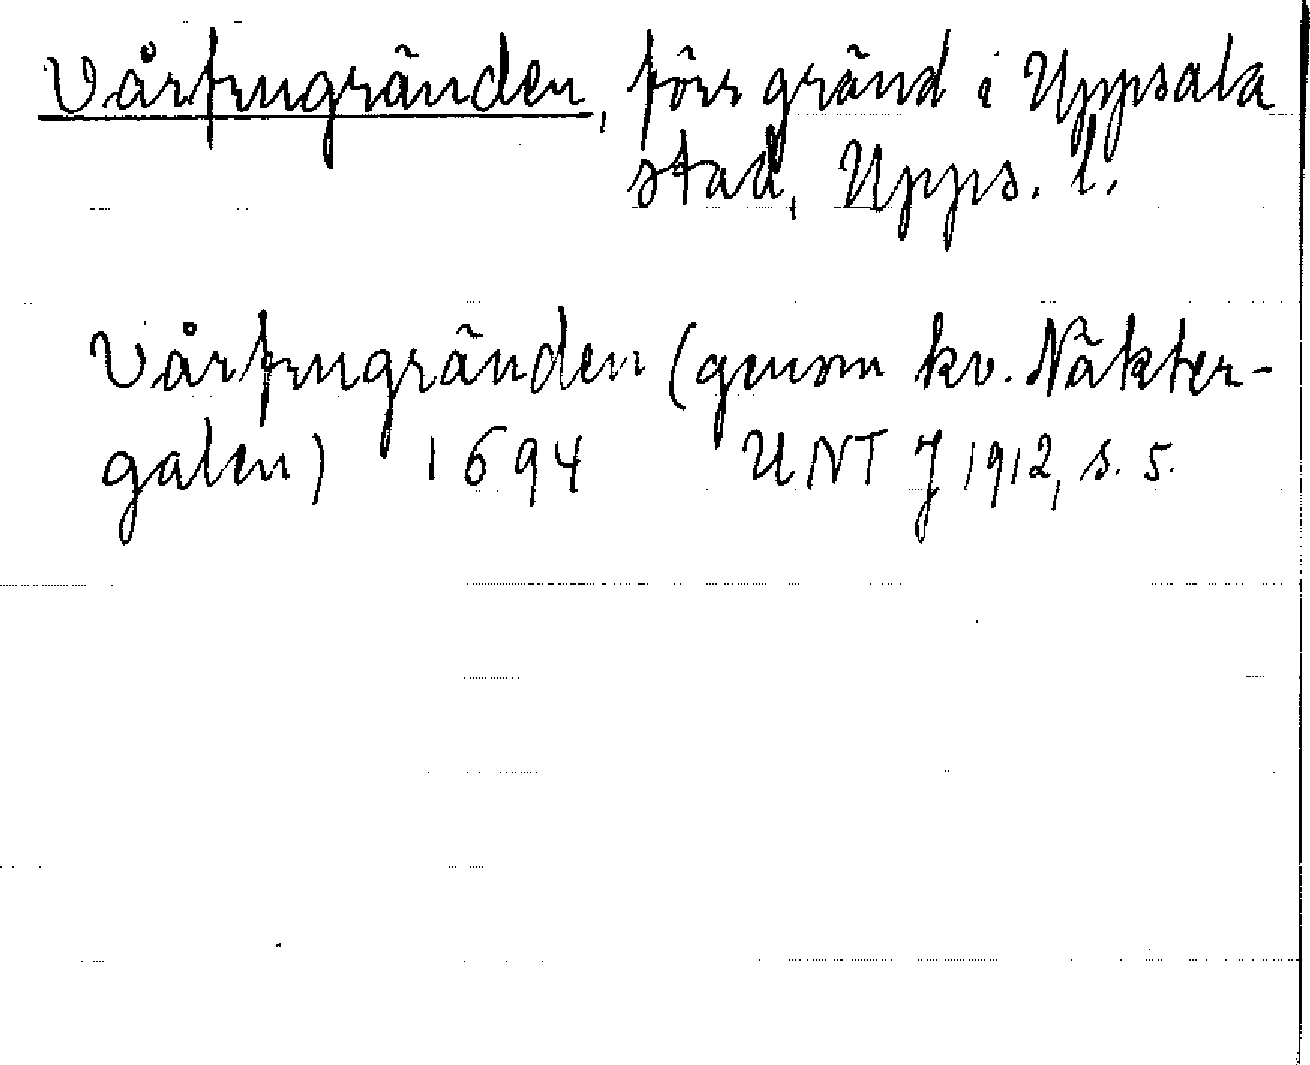 Vårfrugränden, förr gränd i Uppsala
stad, Upps. l.
Vårfrugränden (genom kv. Näkter-
galen) 1694 UNT J 1912, s. 5.